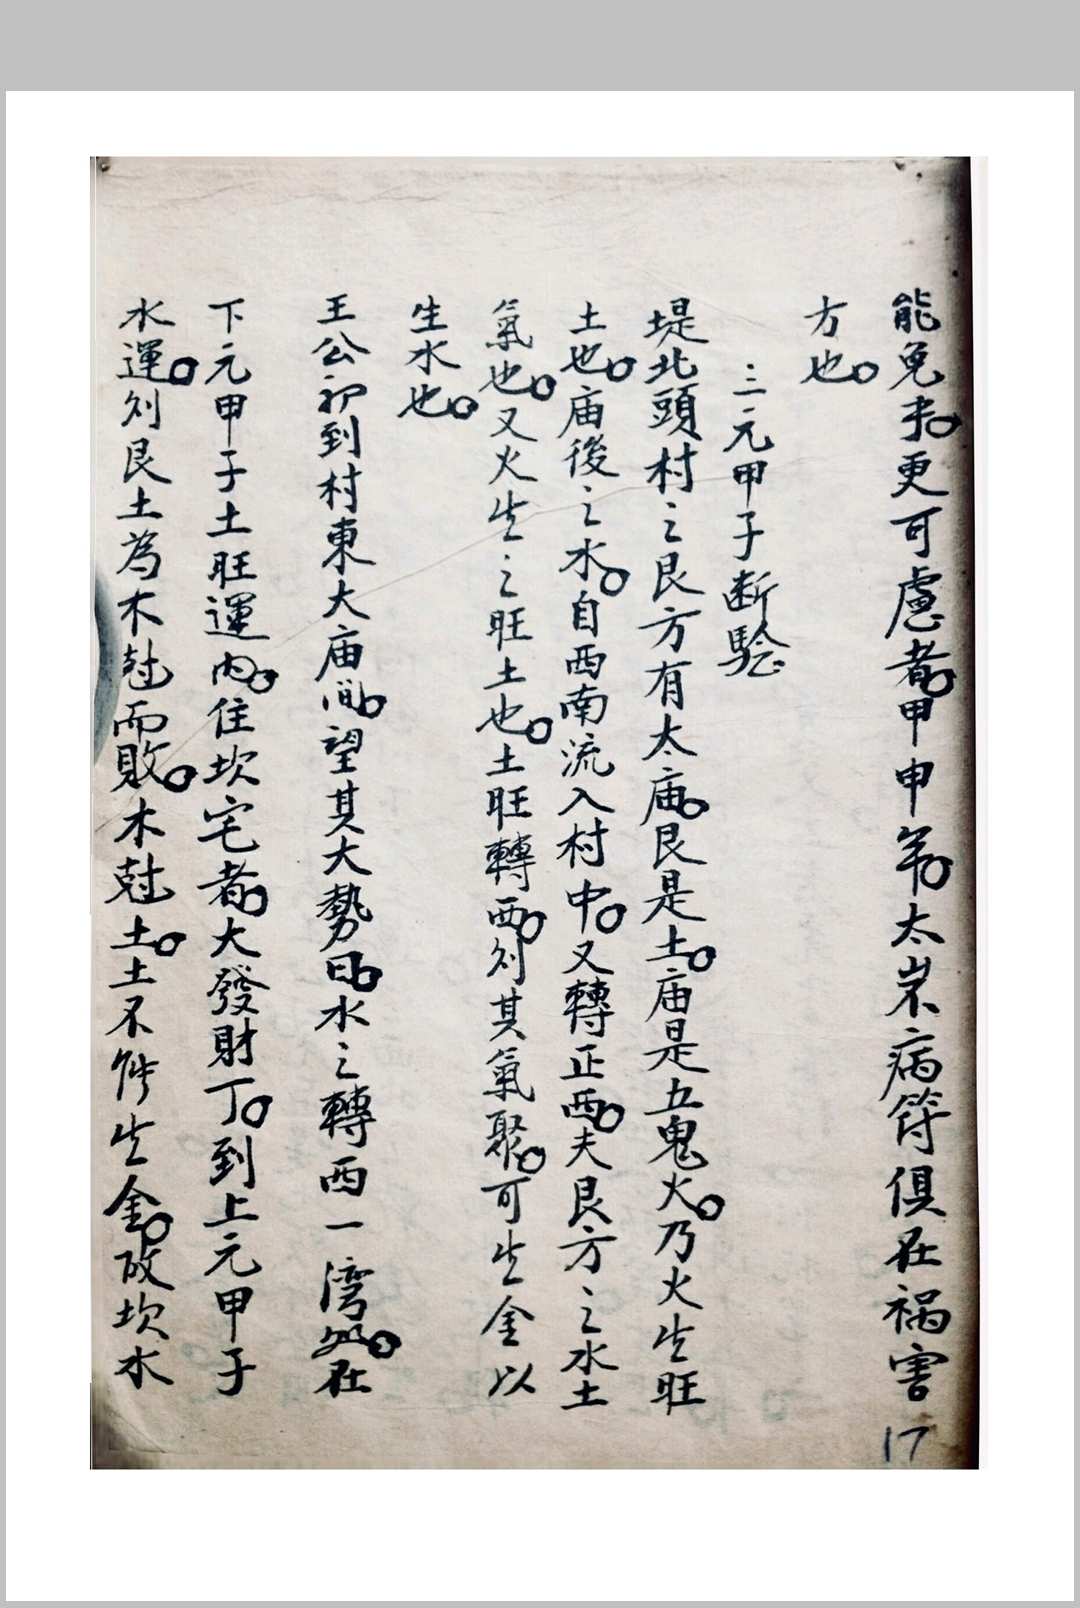 能免未。更可慮者。甲申年。太岁病符俱在禍害
方也。
三元甲子断驗
堤北頭村之艮方有太庙。艮是土。庙是五鬼火。乃火生旺
土也。庙後之水。自西南流入村中。又轉正西。夫艮方之水土
氣也。又火生之旺土也。土旺轉西。则其氣聚。可生金以
生水也。
王公初到村東大庙间。望其大勢曰。水之轉西一湾处。在
下元甲子土旺運内。住坎宅者。大發財丁。到上元甲子
水運。则艮土為木尅而敗。木尅土。土不能生金。故坎水
17